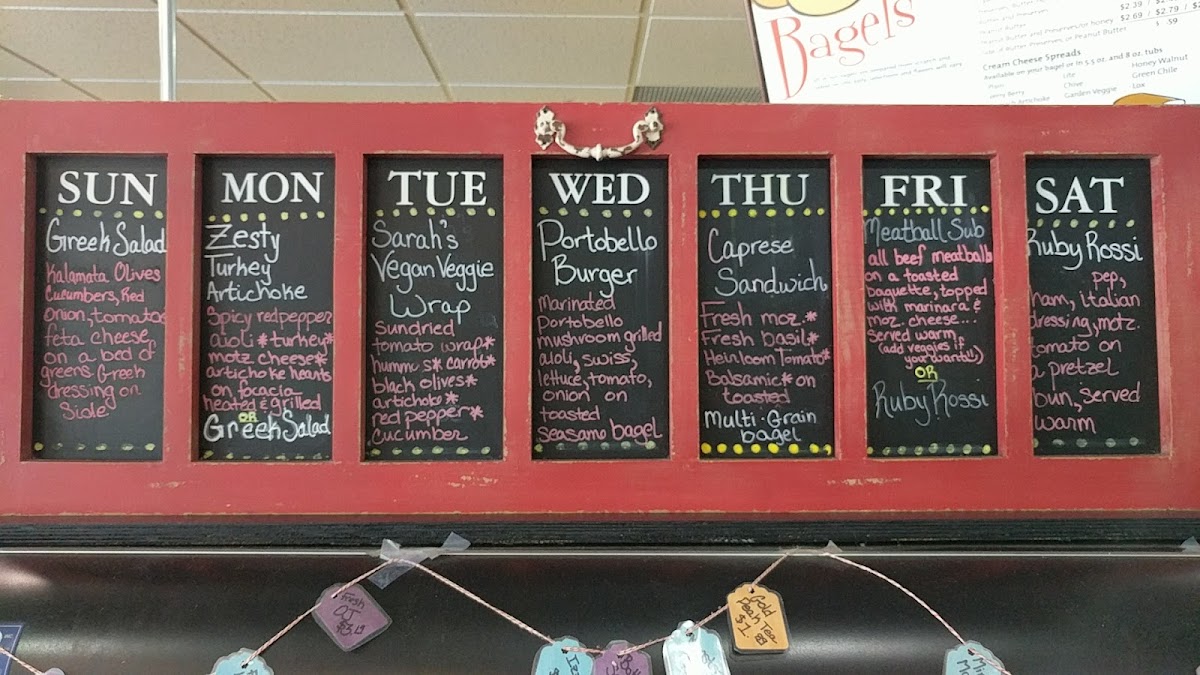 Bagels
$2.39 /
$2.69 / $2.79 /
Peanut Butter and Preserves or honey
$ .59
Cream Cheese Spreads
Available on your bagel or in 5.5 oz. and 8 oz. tubs
Plain
Lite
Honey Walnut
Very Berry
Chive
Green Chile
Artichoke
Garden Veggie
Lox
SUN
Greek Salad
Kalamata Olives
Cucumbers, Red
onion, tomatos
feta cheese,
on a bed of
greens. Greek
dressing on
Side
MON
Zesty
Turkey
Artichoke
Spicy red pepper
aioli * turkey*
motz cheese*
artichoke hearts
on focacia
heated & grilled
OR
Greek Salad
TUE
Sarah's
Vegan Veggie
Wrap
sundried
tomato wrap*
hummus* carrot*
black olives*
artichoke*
red pepper*
cucumber
WED
Portobello
Burger
marinated
Portobello
mushroom grilled
aioli, swiss,
lettuce, tomato,
onion on
toasted
seasame bagel
THU
Caprese
Sandwich
Fresh moz. *
Fresh basil *
Heirloom Tomato*
Balsamic* on
toasted
Multi-Grain
bagel
FRI
Meatball Sub
all beef meatballs
on a toasted
baguette, topped
with marinara &
moz. cheese...
served warm
(add veggies if
your want!!)
OR
Ruby Rossi
SAT
Ruby Rossi
pep,
ham, italian
dressing, motz.
tomato on
a pretzel
bun, served
warm
Fresh
OJ
Gold
Peak Tea
$1.89